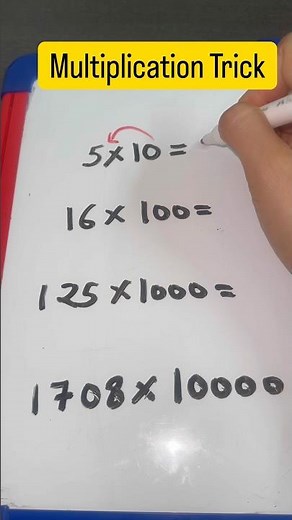 Multiplication Trick
5 × 10 =
16 × 100 =
125 × 1000 =
1708 × 10000